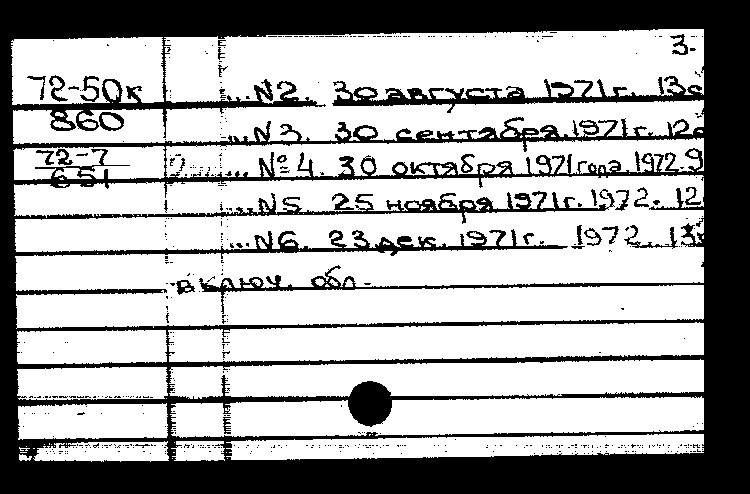 3.
72-50к ...N2. 30 августа 1971г. 13с
860 ...N3. 30 сентября 1971г. 12с
72-7 ... № 4. 30 октября 1971года. 1972. 9
651 ...N5. 25 ноября 1971г. 1972. 12
...N6. 23 дек. 1971г. 1972. 13с
включ. обл.